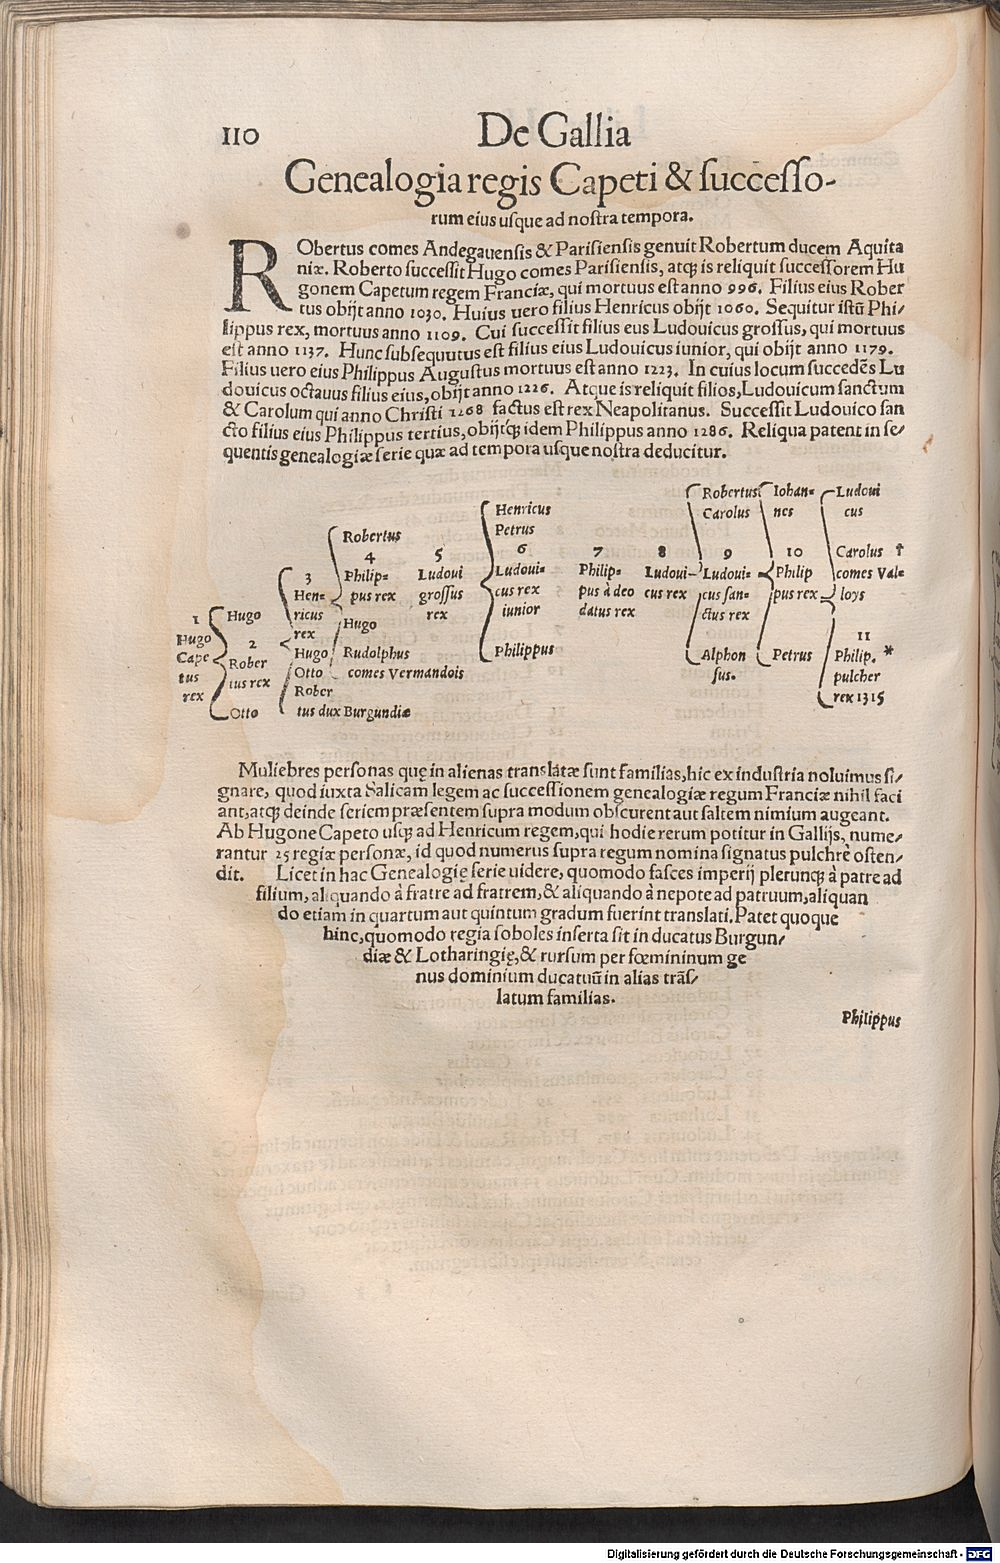 110
De Gallia
Genealogia regis Capeti & successo-
rum eius usque ad nostra tempora.
RObertus comes Andegauensis & Parisiensis genuit Robertum ducem Aquita
niæ. Roberto successit Hugo comes Parisiensis, atqꝫ is reliquit successorem Hu
gonem Capetum regem Franciæ, qui mortuus est anno 996. Filius eius Rober
tus obijt anno 1030. Huius uero filius Henricus obijt 1060. Sequitur istũ Phi-
lippus rex, mortuus anno 1109. Cui successit filius eus Ludouicus grossus, qui mortuus
est anno 1137. Hunc subsequutus est filius eius Ludouicus iunior, qui obijt anno 1179.
Filius uero eius Philippus Augustus mortuus est anno 1223. In cuius locum succedẽs Lu
douicus octauus filius eius, obijt anno 1226. Atque is reliquit filios, Ludouicum sanctum
& Carolum qui anno Christi 1268 factus est rex Neapolitanus. Successit Ludouico san
cto filius eius Philippus tertius, obijtqꝫ idem Philippus anno 1286. Reliqua patent in se-
quentis genealogiæ serie quæ ad tempora usque nostra deducitur.
1
Hugo
Cape
tus
rex
Hugo
2
Rober
tus rex
Otto
3
Hen=
ricus
rex
Hugo
Otto
Rober
tus dux Burgundiæ
Robertus
4
Philip=
pus rex
Hugo
Rudolphus
comes Vermandois
5
Ludoui
grossus
rex
Henricus
Petrus
6
Ludoui=
cus rex
iunior
Philippus
7
Philip=
pus à deo
datus rex
8
Ludoui-
cus rex
Robertus
Carolus
9
Ludoui=
cus san=
ctus rex
Alphon
sus.
Iohan=
nes
10
Philip
pus rex
Petrus
Ludoui
cus
Carolus †
comes Val=
loys
11
Philip. *
pulcher
rex 1315
Muliebres personas quę in alienas translatæ sunt familias, hic ex industria noluimus si-
gnare, quod iuxta Salicam legem ac successionem genealogiæ regum Franciæ nihil faci
ant, atqꝫ deinde seriem præsentem supra modum obscurent aut saltem nimium augeant.
Ab Hugone Capeto usqꝫ ad Henricum regem, qui hodie rerum potitur in Gallijs, nume-
rantur 25 regiæ personæ, id quod numerus supra regum nomina signatus pulchrè osten-
dit. Licet in hac Genealogię serie uidere, quomodo fasces imperij plerunqꝫ à patre ad
filium, aliquando à fratre ad fratrem, & aliquando à nepote ad patruum, aliquan
do etiam in quartum aut quintum gradum fuerint translati. Patet quoque
hinc, quomodo regia soboles inserta sit in ducatus Burgun-
diæ & Lotharingię, & rursum per fœmininum ge
nus dominium ducatuũ in alias trãs-
latum familias.
Philippus
Digitalisierung gefördert durch die Deutsche Forschungsgemeinschaft - DFG